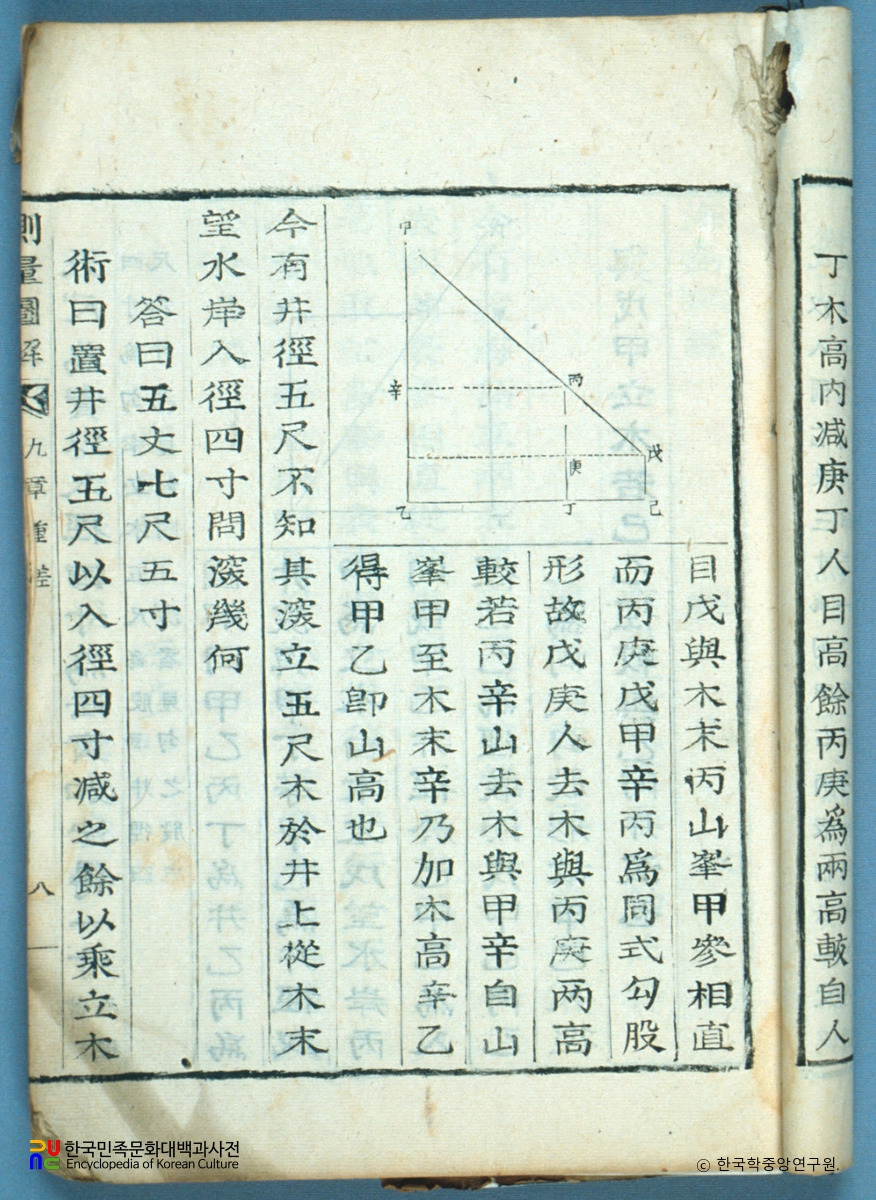 丁木高內减庚丁人目高餘丙庚爲兩高較自人
甲
丙
辛
戊
庚
乙
丁
己
目戊與木末丙山峯甲參相直
而丙庚戊甲辛丙爲同式勾股
形故戊庚人去木與丙庚兩高
較若丙辛山去木與甲辛自山
峯甲至木末辛乃加木高辛乙
得甲乙卽山高也
今有井徑五尺不知其深立五尺木於井上從木末
望水岸入徑四寸問深幾何
答曰五丈七尺五寸
術曰置井徑五尺以入徑四寸减之餘以乘立木
測量圖解
九章重差
八
한국민족문화대백과사전
Encyclopedia of Korean Culture
© 한국학중앙연구원.